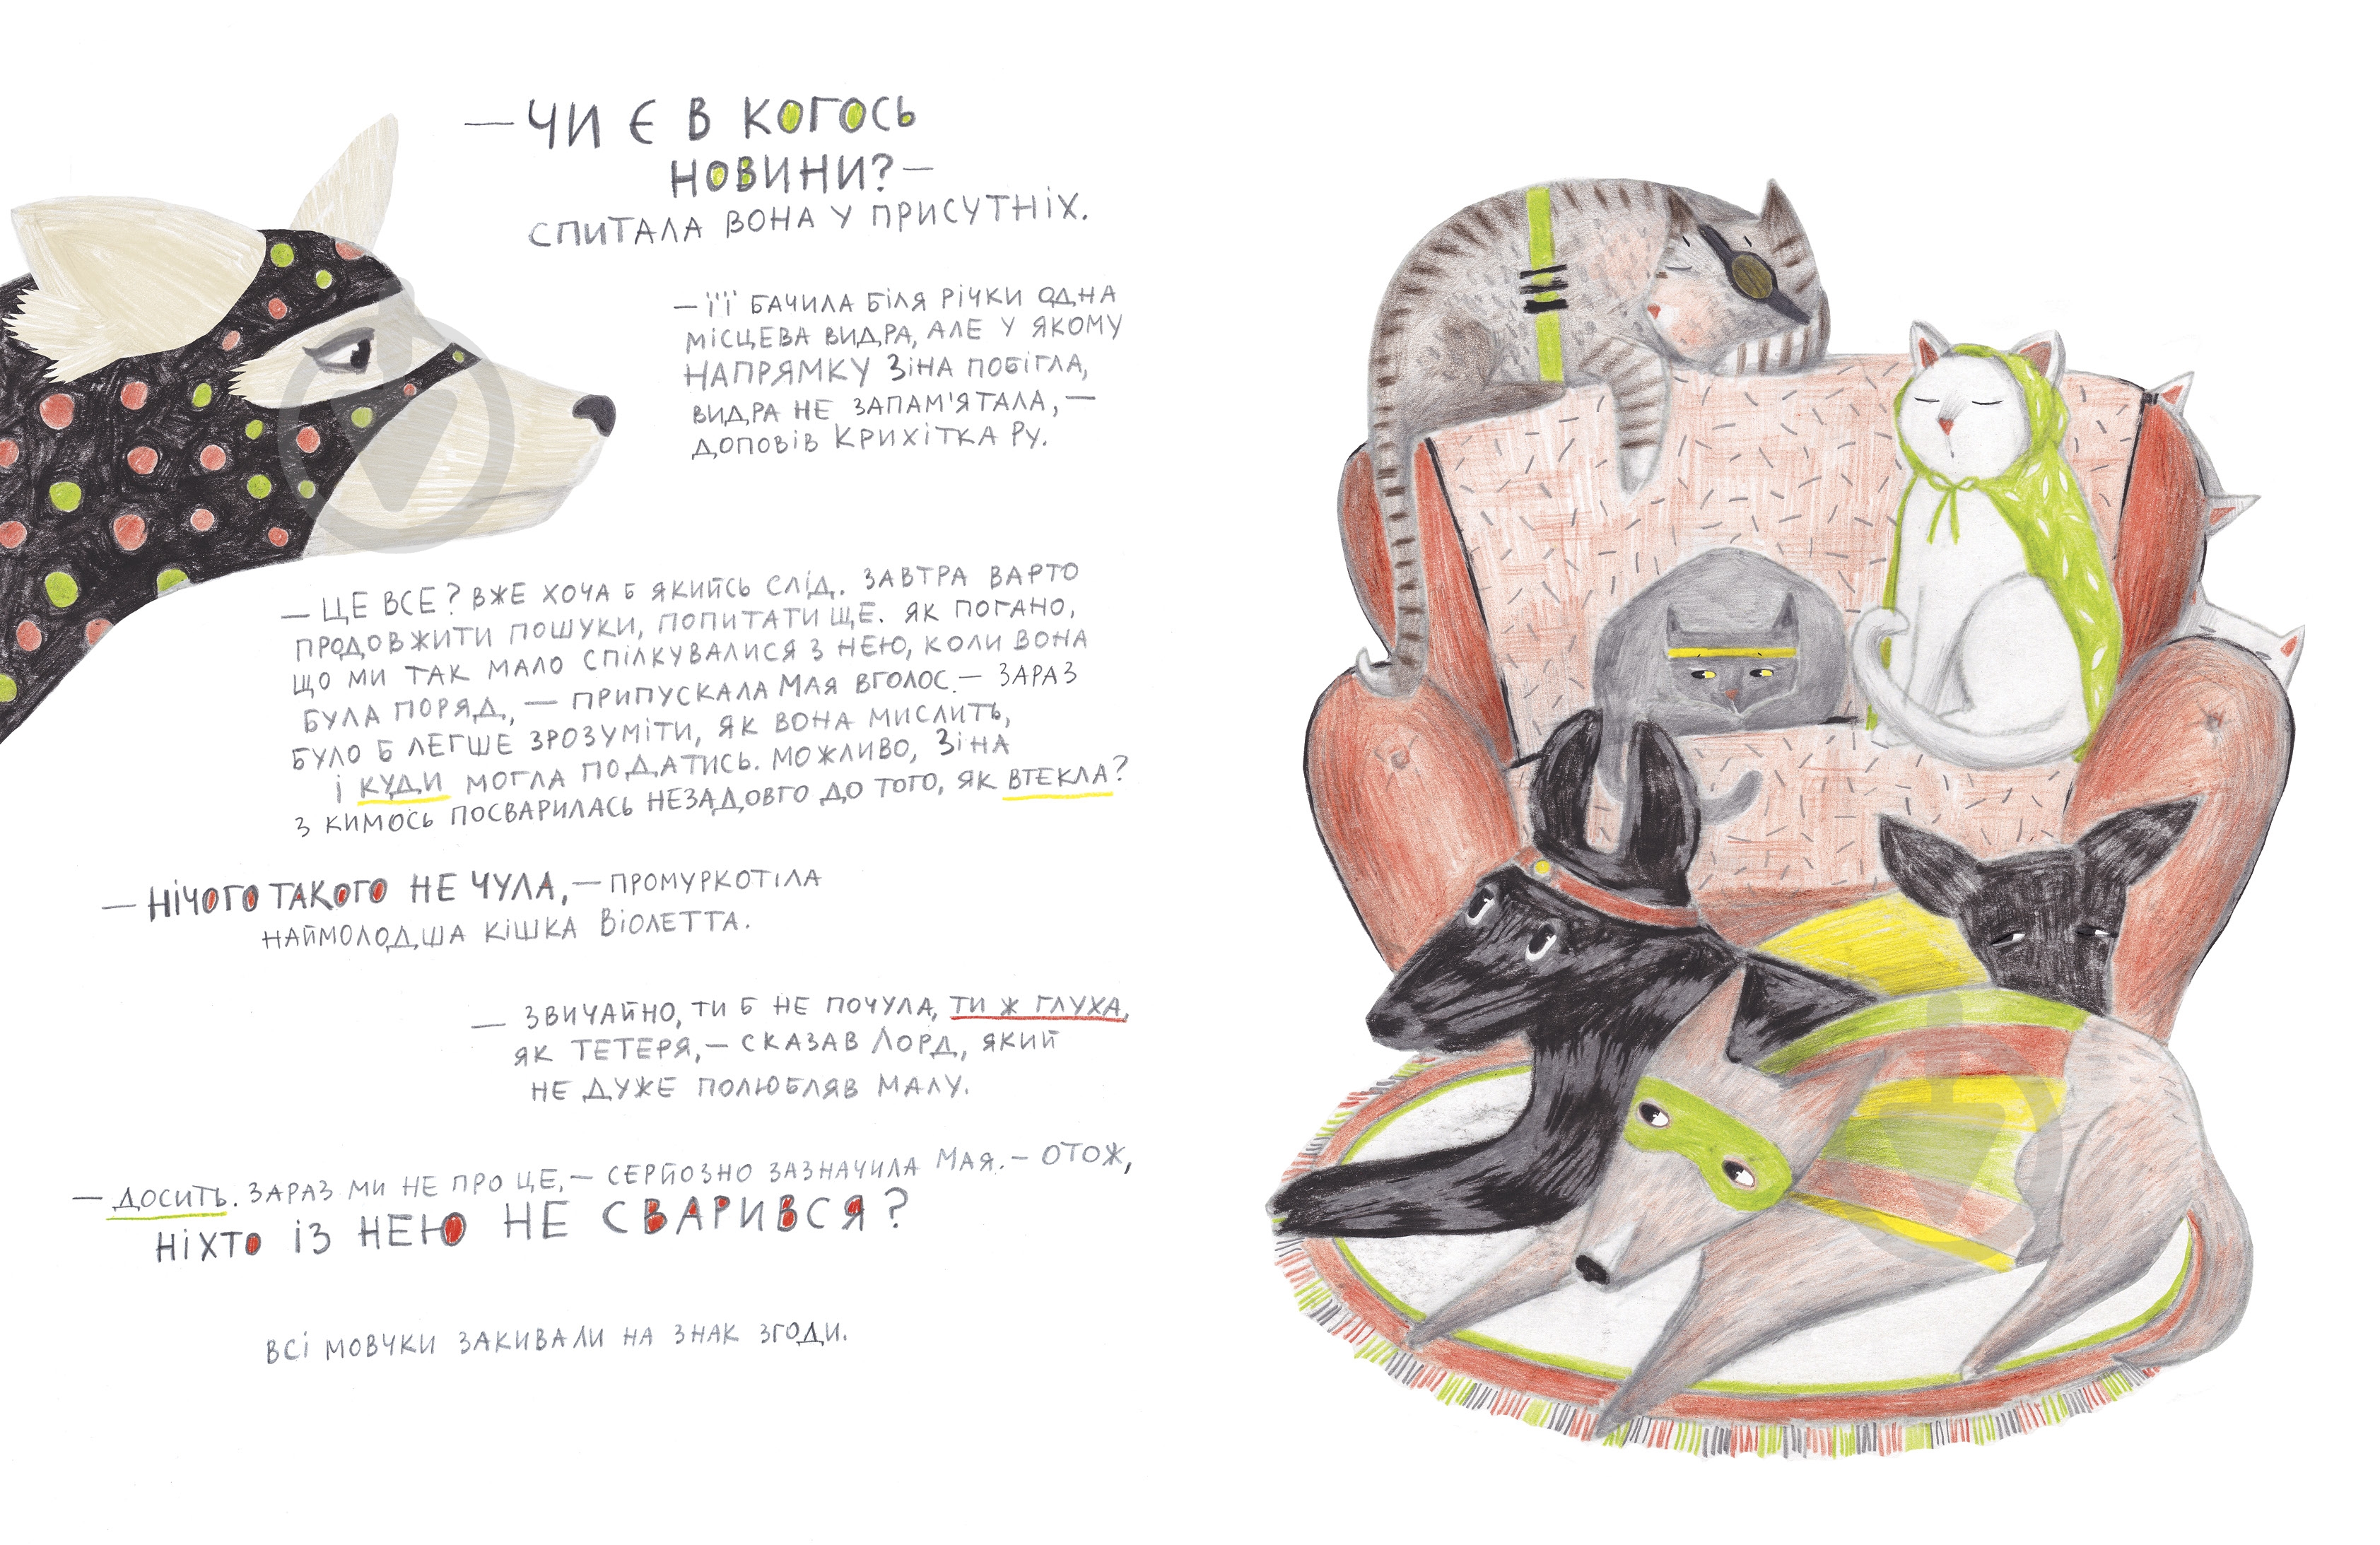 — ЧИ Є В КОГОСЬ
НОВИНИ? —
СПИТАЛА ВОНА У ПРИСУТНІХ.
— ЇЇ БАЧИЛА БІЛЯ РІЧКИ ОДНА
МІСЦЕВА ВИДРА, АЛЕ У ЯКОМУ
НАПРЯМКУ ЗІНА ПОБІГЛА,
ВИДРА НЕ ЗАПАМ'ЯТАЛА, —
ДОПОВІВ КРИХІТКА РУ.
— ЦЕ ВСЕ? ВЖЕ ХОЧА Б ЯКИЙСЬ СЛІД. ЗАВТРА ВАРТО
ПРОДОВЖИТИ ПОШУКИ, ПОПИТАТИ ЩЕ. ЯК ПОГАНО,
ЩО МИ ТАК МАЛО СПІЛКУВАЛИСЯ З НЕЮ, КОЛИ ВОНА
БУЛА ПОРЯД, — ПРИПУСКАЛА МАЯ ВГОЛОС. — ЗАРАЗ
БУЛО Б ЛЕГШЕ ЗРОЗУМІТИ, ЯК ВОНА МИСЛИТЬ,
І КУДИ МОГЛА ПОДАТИСЬ. МОЖЛИВО, ЗІНА
З КИМОСЬ ПОСВАРИЛАСЬ НЕЗАДОВГО ДО ТОГО, ЯК ВТЕКЛА?
— НІЧОГО ТАКОГО НЕ ЧУЛА, — ПРОМУРКОТІЛА
НАЙМОЛОДША КІШКА ВІОЛЕТТА.
— ЗВИЧАЙНО, ТИ Б НЕ ПОЧУЛА, ТИ Ж ГЛУХА,
ЯК ТЕТЕРЯ, — СКАЗАВ ЛОРД, ЯКИЙ
НЕ ДУЖЕ ПОЛЮБЛЯВ МАЛУ.
— ДОСИТЬ. ЗАРАЗ МИ НЕ ПРО ЦЕ, — СЕРЙОЗНО ЗАЗНАЧИЛА МАЯ. — ОТОЖ,
НІХТО ІЗ НЕЮ НЕ СВАРИВСЯ?
ВСІ МОВЧКИ ЗАКИВАЛИ НА ЗНАК ЗГОДИ.